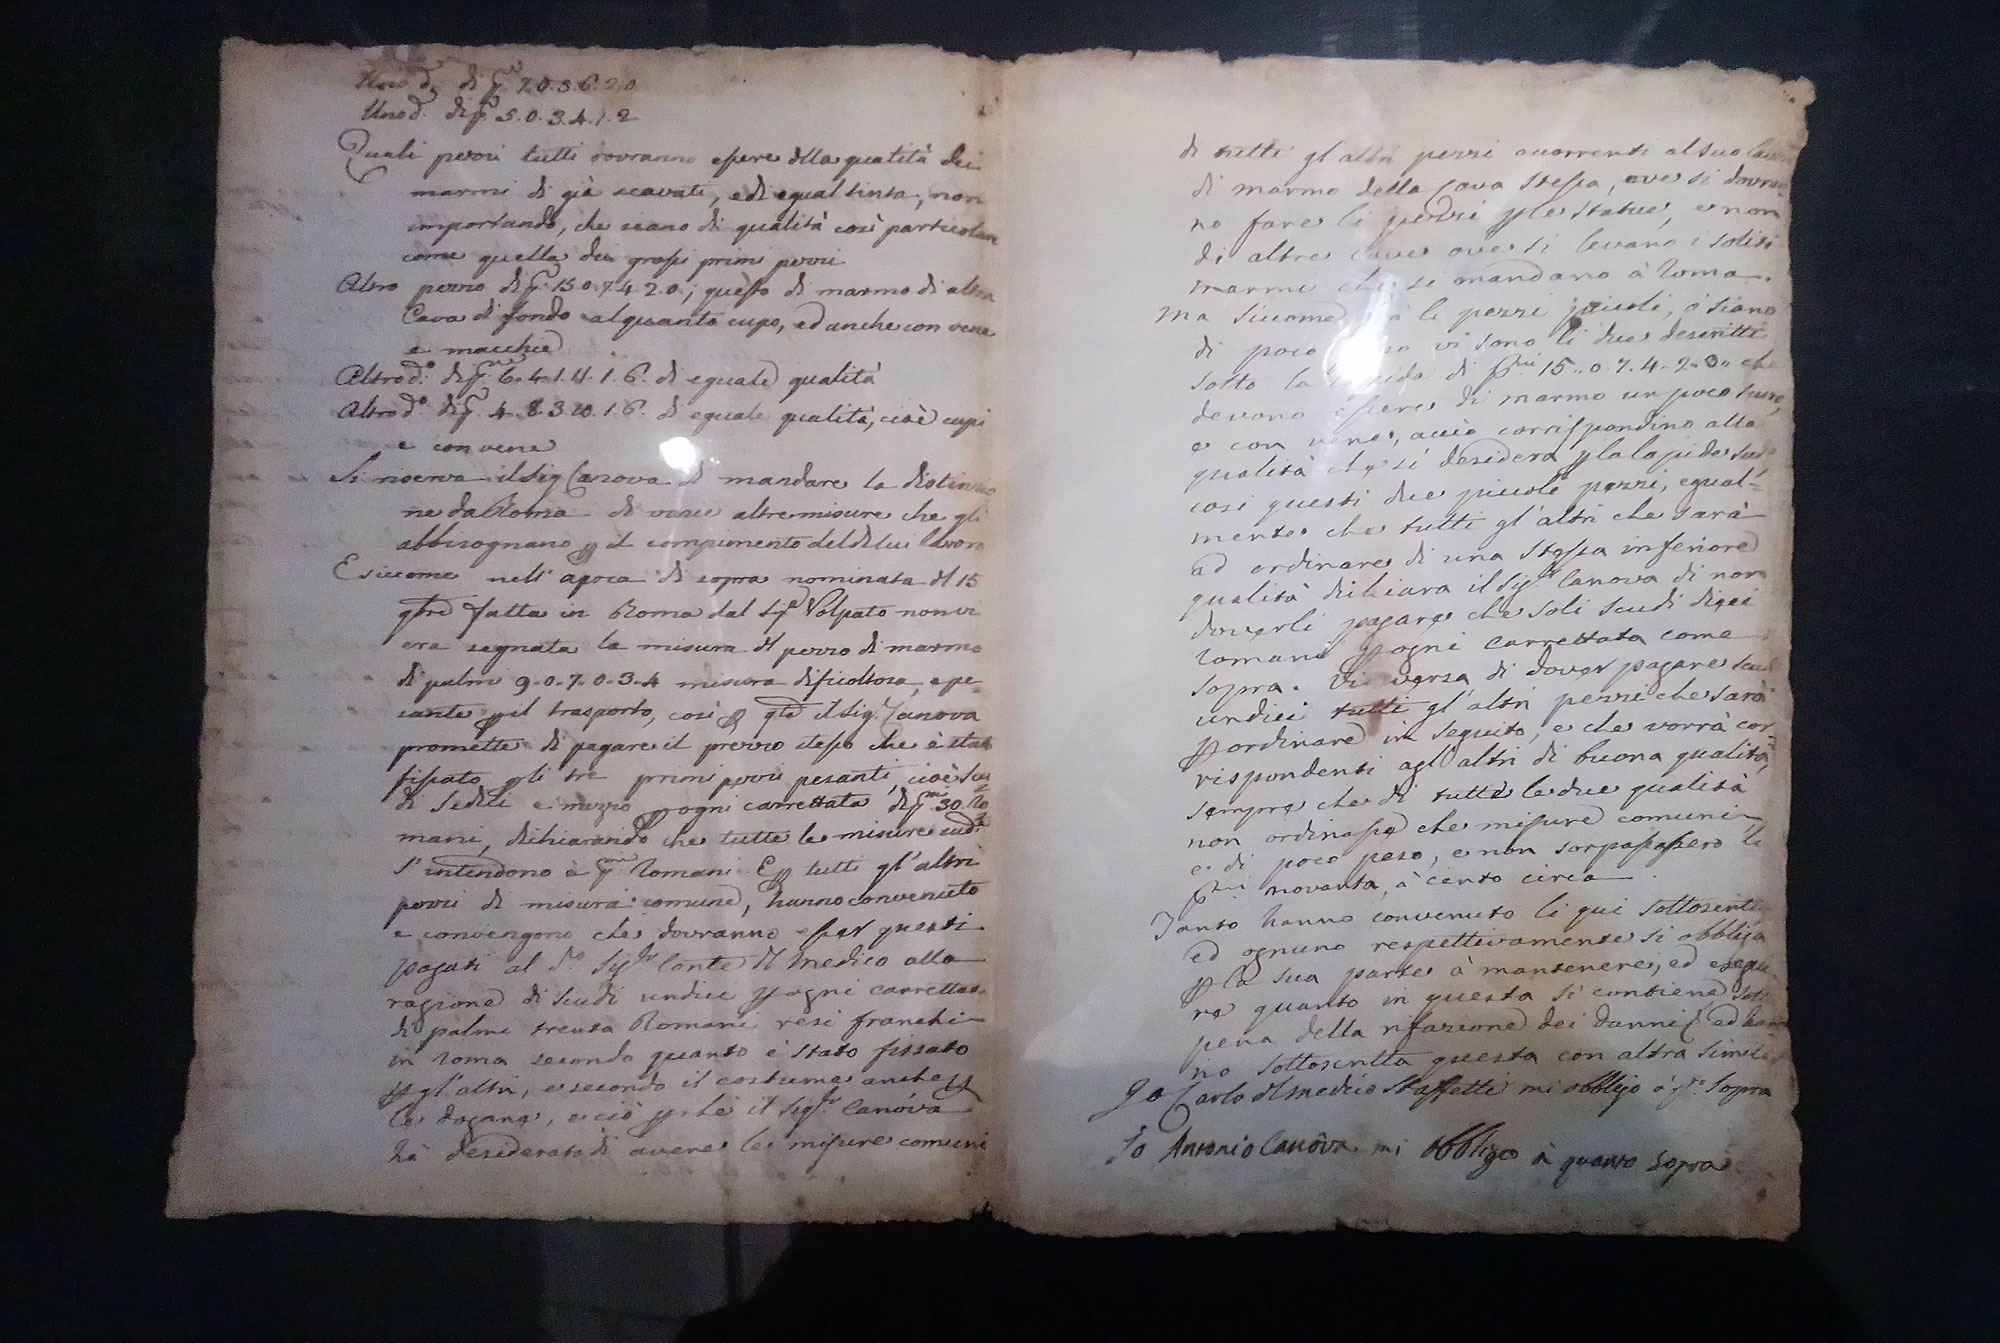 Uno d.º di p.mi 7.0.5.6.2.0
Uno d.º di p.mi 5.0.3.4.1.2
Quali pezzi tutti dovranno essere dlla qualità dei
marmi di già scavati, e di egual tinta, non
importando, che siano di qualità così particolare
come quella dei grossi primi pezzi
Altro pezzo di p.mi 15.0.7.4.2.0; questo di marmo di altra
Cava di fondo alquanto cupo, ed anche con vene
e macchie
Altro d.º di p.mi 6.4.1.11.1.6. di eguale qualità
Altro d.º di p.mi 4.8.3.10.1.6. di eguale qualità, cioè cupi
e con vene
Si riserva il Sig. Canova di mandare la distinzio
ne da Roma di varie altre misure che gli
abbisognano p il compimento del di lui lavoro
E siccome nell'apoca di sopra nominata dl 15
fatta in Roma dal Sig.r Volpato non vi
era segnata la misura dl pezzo di marmo
di palmi 9.0.7.0.3.4 misura dificoltosa, e pe-
sante p il trasporto, così p il Sig. Canova
promette di pagare il prezzo stesso che è stato
fissato p li tre primi pezzi pesanti, cioè Scu
di Sedici e mezzo p ogni carrettata di p.mi 30. Ro
mani, dichiarando che tutte le misure sud.e
s'intendono è p.mi Romani. E p tutti gl'altri
pezzi di misura comune, hanno convenuto
e convengono che dovranno esser questi
pagati al d.º Sig.r Conte dl Medico alla
ragione di Scudi undici p ogni carrettata
di palmi trenta Romani resi franchi
in Roma secondo quanto è stato fissato
p gl'altri, e secondo il costume anche p
le dogane, e ciò p chè il Sig.r Canóva
hà desiderato di avere le misure comuni
di tutti gl'altri pezzi occorrenti al suo lavo
di marmo della Cava stessa, ove si dovran
no fare li pezzi p le Statue, e non
di altre cave ove si levano i soliti
marmi che si mandano à Roma.
Ma siccome li pezzi piccoli, ó siano
di poco vi sono li due descritti
sotto la di p.mi 15..0.7.4..2.0.. che
devono essere di marmo un poco scuro,
e con vene, acciò corrispondino alla
qualità che si desidera p la lapide
così questi due piccoli pezzi, egual-
mente che tutti gl'altri che sarà
ad ordinare di una stessa inferiore
qualità dichiara il Sig.r Canova di non
doverli pagare che soli scudi dieci
romani p ogni carrettata come
sopra. Vi versa di dover pagare scudi
undici tutti gl'altri pezzi che sarà
p ordinare in seguito, e che vorrà cor-
rispondenti agl'altri di buona qualità,
sempre che di tutte le due qualità
non ordinasse che misure comuni
e di poco peso, e non sorpassassero li
p.mi novanta, à cento circa.
Tanto hanno convenuto li qui sottoscritti
ed ognuno respettivamente si obbliga
p la sua parte à mantenere, ed esegui
re quanto in questa si contiene sotto
pena della rifazione dei danni, ed han
no sottoscritta questa con altra simile
Io Carlo dl Medico Staffetti mi obbligo à q.to Sopra
Io Antonio Canôva mi obbligo à quanto Sopra